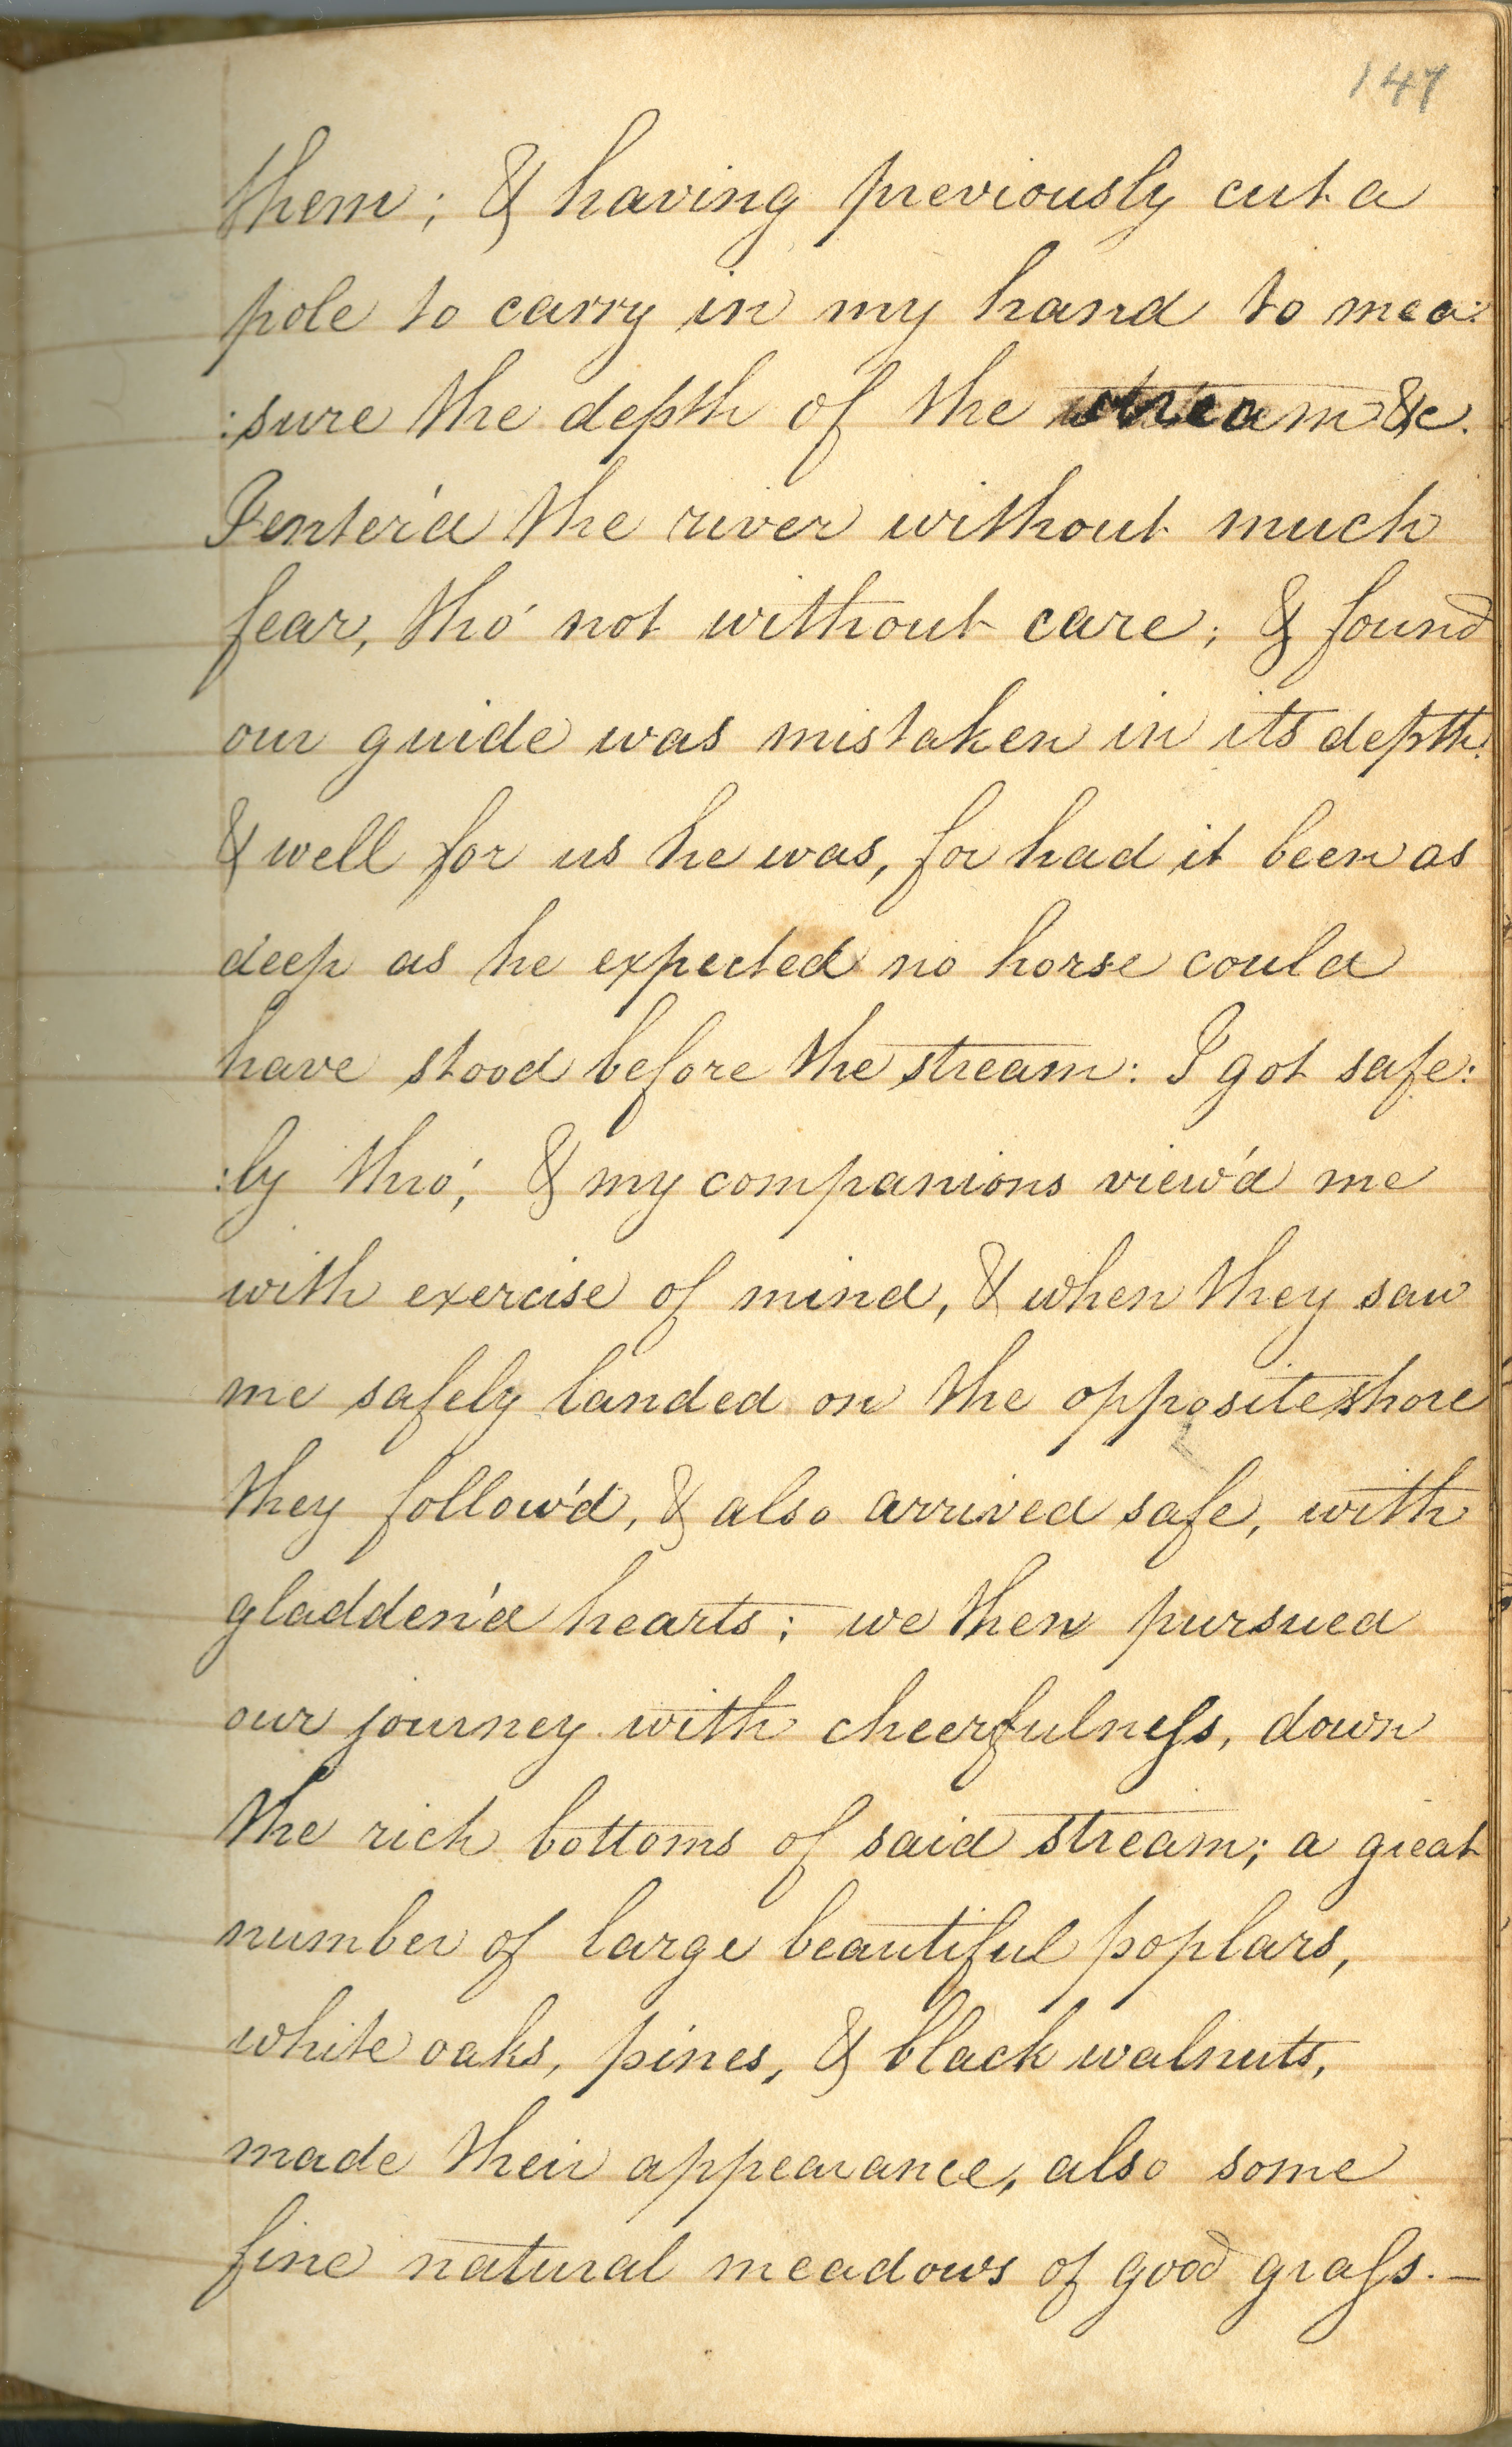 147
them; & having previously cut a
pole to carry in my hand to mea:
:sure the depth of the stream &c.
I enter'd the river without much
fear, tho' not without care; & found
our guide was mistaken in its depth.
& well for us he was, for had it been as
deep as he expected no horse could
have stood before the stream: I got safe:
:ly thro', & my companions view'd me
with exercise of mind, & when they saw
me safely landed on the opposite shore
they follow'd, & also arrived safe, with
gladden'd hearts; we then pursued
our journey with cheerfulneſs, down
the rich bottoms of said stream; a great
number of large beautiful poplars,
white oaks, pines, & black walnuts,
made their appearance, also some
fine natural meadows of good graſs. —